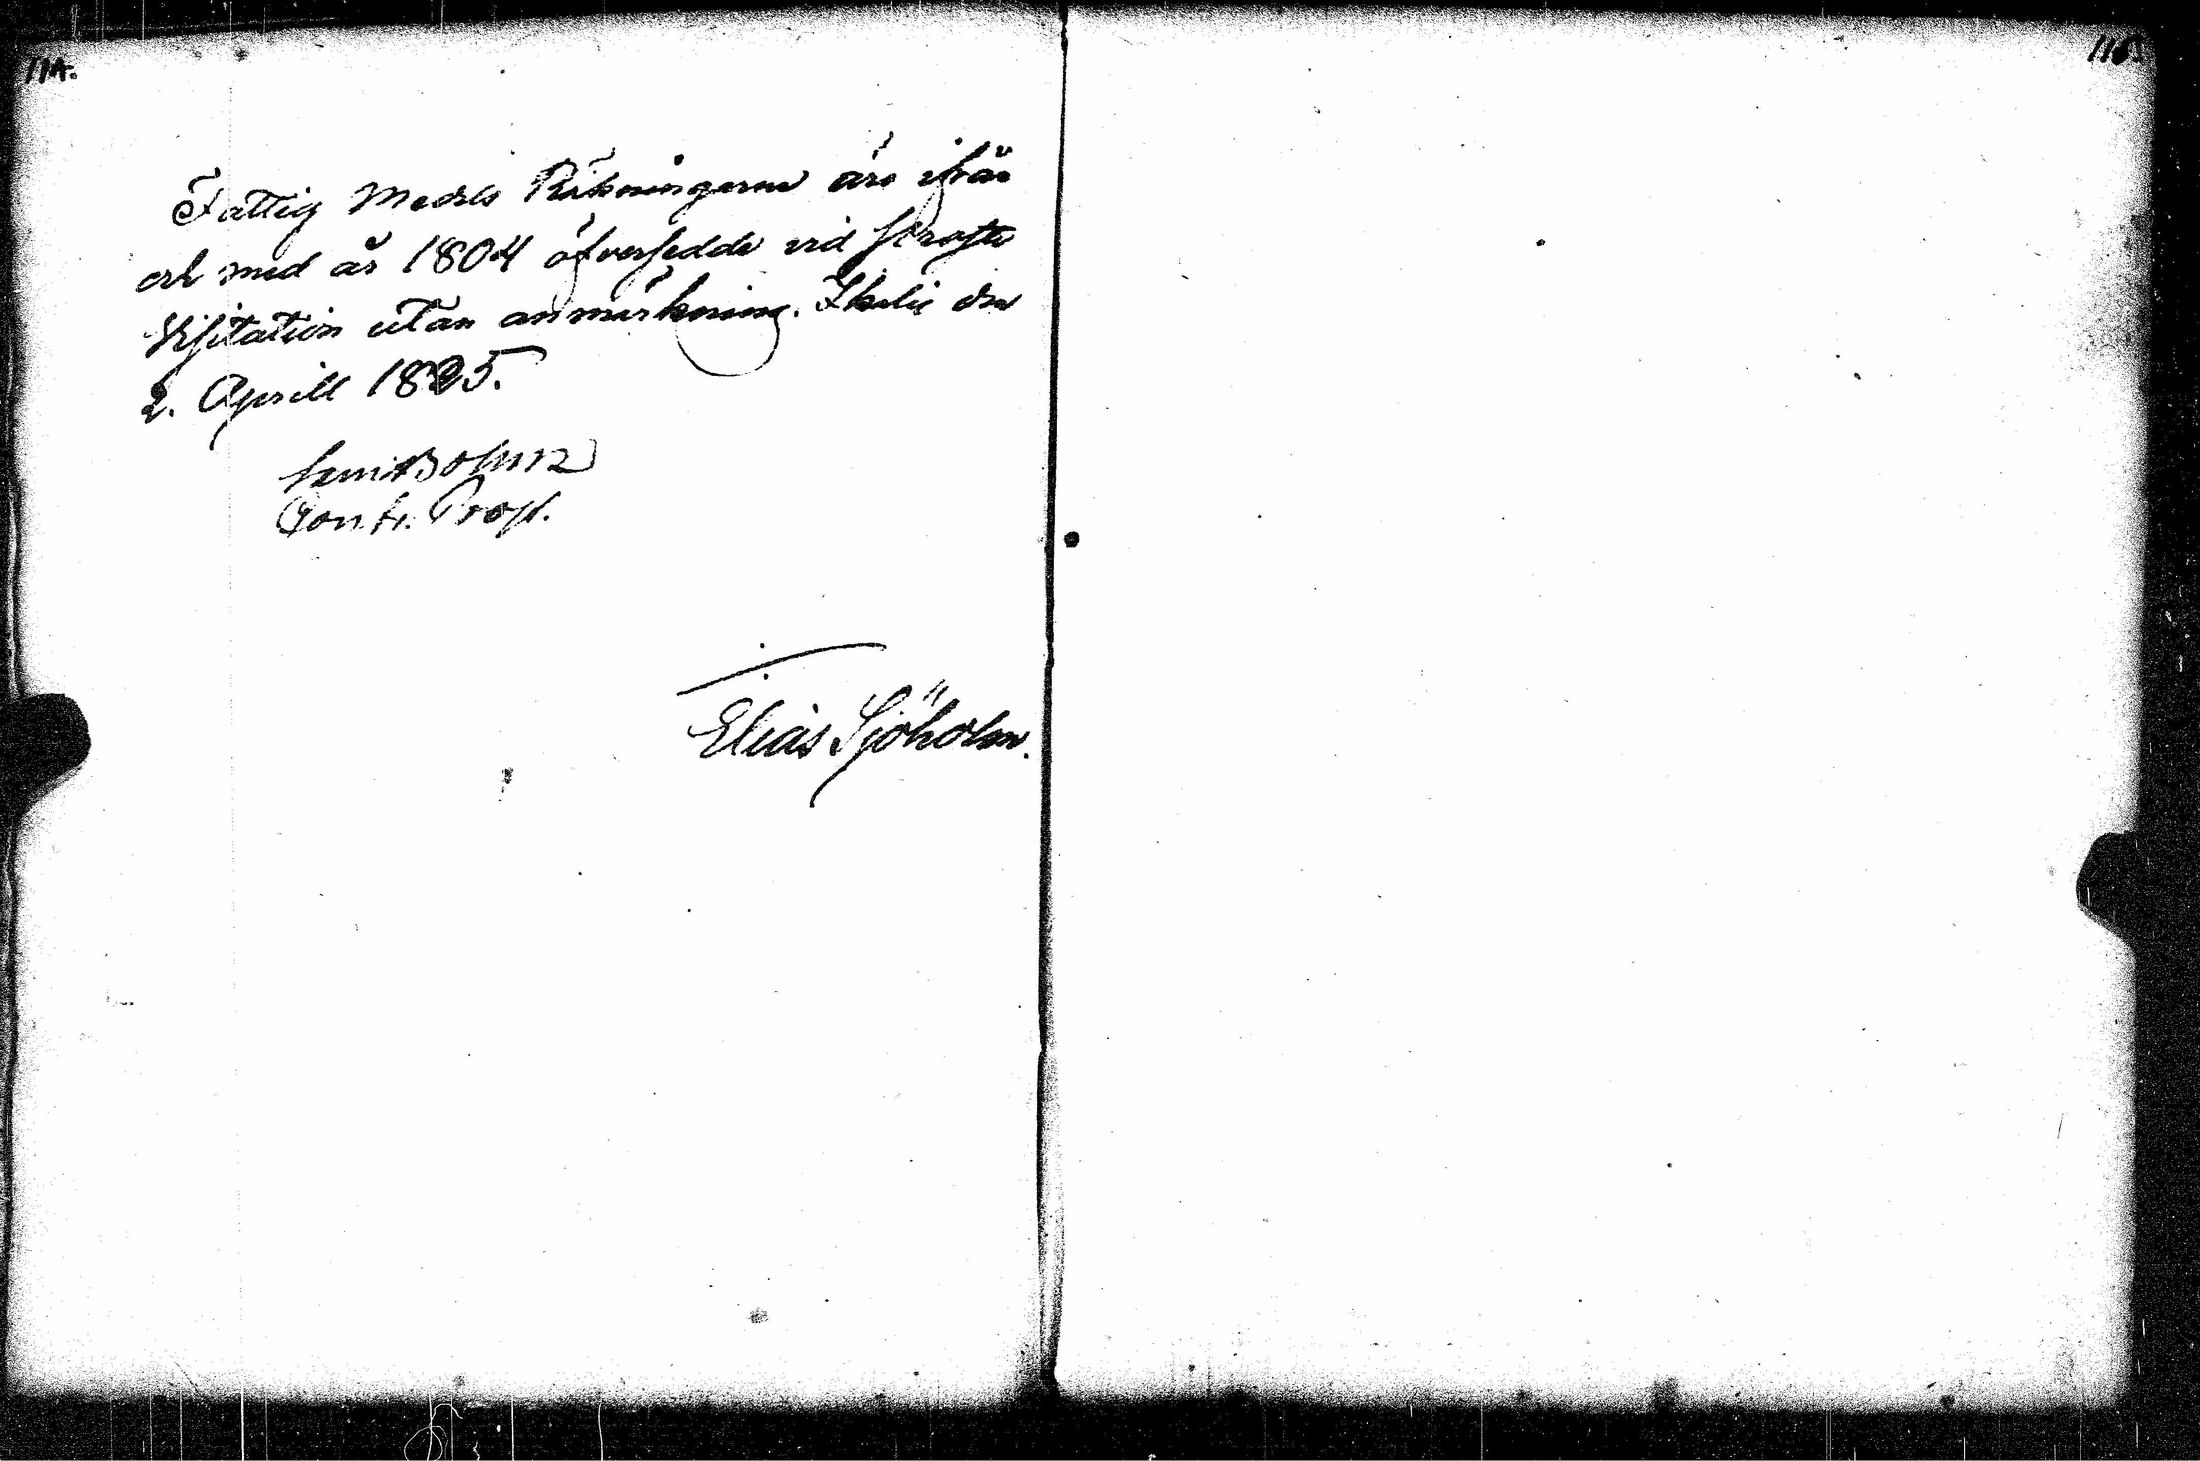 114.
Fattig Medels Räkningarne äro ifrån
och med år 1804 öfversedde vid Prosts
Visitation utan anmärkning. Ikalis den
2. Aprill 1825.
Bohm
Contr. Prost.
Elias Sjöholm.
115